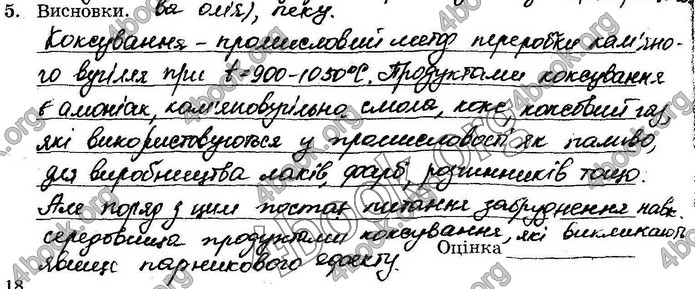 5. Висновки. ва олія), пеку.
Коксування – промисловий метод переробки кам'яно-
го вугілля при t=900-1050°C. Продуктами коксування
є амоніак, кам'яновугільна смола, кокс, коксовий газ,
які використовуються у промисловості як паливо,
для виробництва лаків, фарб, розчинників тощо.
Але поряд з цим постає питання забруднення навк.
середовища продуктами коксування, які викликають
явище парникового ефекту.
Оцінка
18
4book.org